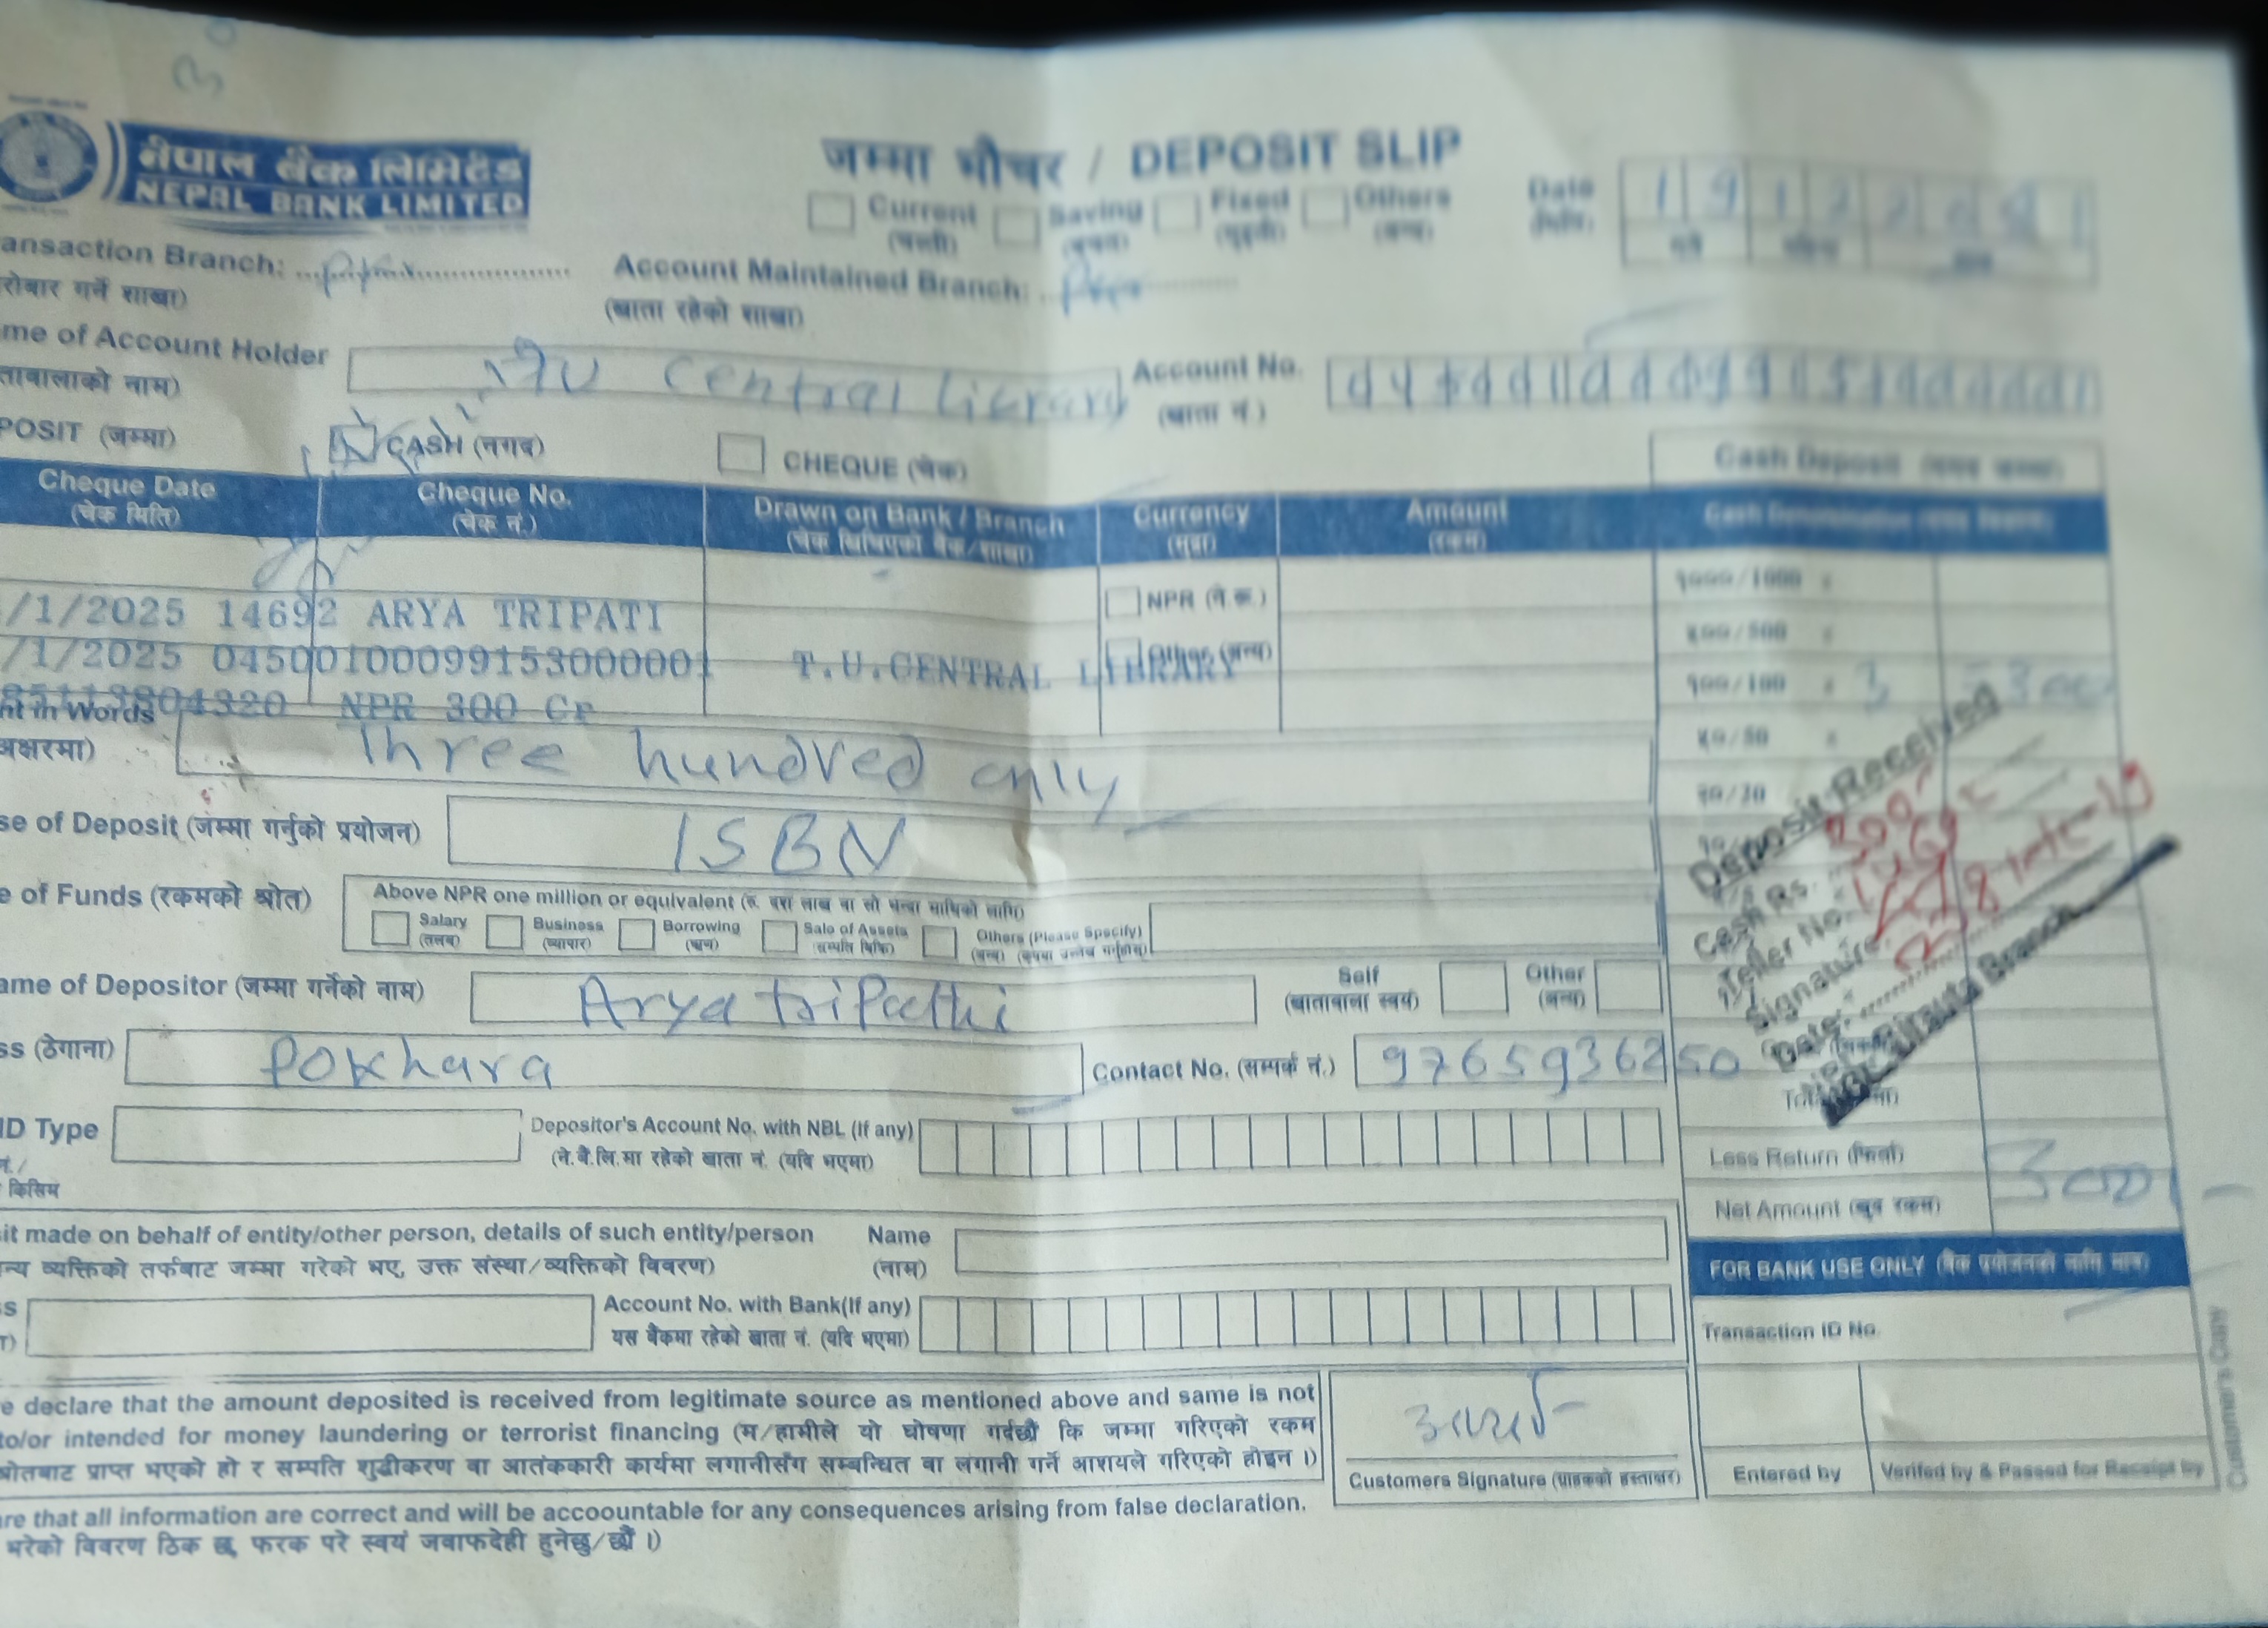 नेपाल बैंक लिमिटेड
NEPAL BANK LIMITED
जम्मा भौचर / DEPOSIT SLIP
Current Saving Fixed Others
Date
ansaction Branch:
रोबार गर्ने शाखा)
Account Maintained Branch:
(खाता रहेको शाखा)
me of Account Holder
ताबालाको नाम)
Central Library
Account No.
(खाता नं.)
POSIT (जम्मा)
CASH (नगद)
CHEQUE (चेक)
Cash Deposit
Cheque Date
(चेक मिति)
Cheque No.
(चेक नं.)
Drawn on Bank / Branch
(चेक खिचिएको बैंक/शाखा)
Currency
(मुद्रा)
Amount
(रकम)
१०००/1000
NPR (ने.रू.)
/1/2025 14692 ARYA TRIPATI
५००/500
Other (अन्य)
/1/2025 04500100099153000001 T.U.CENTRAL LIBRARY
१००/100 3 300
NPR 300 Cr
nt in Words
अक्षरमा)
Three hundred only
५०/50
Deposit Received
Cash Rs.
Teller No.
Signature
Date:
Birauta Branch
se of Deposit (जम्मा गर्नुको प्रयोजन)
ISBN
e of Funds (रकमको श्रोत)
Above NPR one million or equivalent (रु. दश लाख वा सो भन्दा माथिको लागि)
Salary
(तलब)
Business
(व्यापार)
Borrowing
(ऋण)
Sale of Assets
(सम्पति बिक्रि)
Others (Please Specify)
ame of Depositor (जम्मा गर्नेको नाम)
Arya tripathi
Self
(खातावाला स्वयं)
Other
(अन्य)
ss (ठेगाना)
Pokhara
Contact No. (सम्पर्क नं.)
9765936250
ID Type
किसिम
Depositor's Account No. with NBL (If any)
(ने.बैं.लि.मा रहेको खाता नं. (यदि भएमा)
Less Return (फिर्ता)
Net Amount (खुद रकम)
300/-
it made on behalf of entity/other person, details of such entity/person
न्य व्यक्तिको तर्फबाट जम्मा गरेको भए, उक्त संस्था/व्यक्तिको विवरण)
Name
(नाम)
FOR BANK USE ONLY
Account No. with Bank(If any)
यस बैंकमा रहेको खाता नं. (यदि भएमा)
Transaction ID No.
e declare that the amount deposited is received from legitimate source as mentioned above and same is not
to/or intended for money laundering or terrorist financing (म/हामीले यो घोषणा गर्दछौं कि जम्मा गरिएको रकम
श्रोतबाट प्राप्त भएको हो र सम्पति शुद्धीकरण वा आतंककारी कार्यमा लगानीसँग सम्बन्धित वा लगानी गर्ने आशयले गरिएको होइन ।)
Customers Signature (ग्राहकको हस्ताक्षर)
Entered by
Verifed by & Passed for Receipt by
Customer's Copy
re that all information are correct and will be accoountable for any consequences arising from false declaration.
भरेको विवरण ठिक छ, फरक परे स्वयं जवाफदेही हुनेछु/छौं ।)